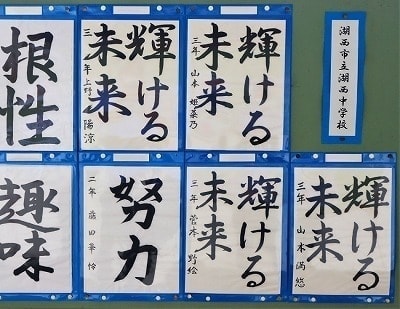 湖西市立湖西中学校
輝ける
未来
三年 山本 姫菜乃
輝ける
未来
三年 上野 陽涼
根性
輝ける
未来
三年 山本 満
輝ける
未来
三年 菅本 野絵
努力
二年 藤田
趣味